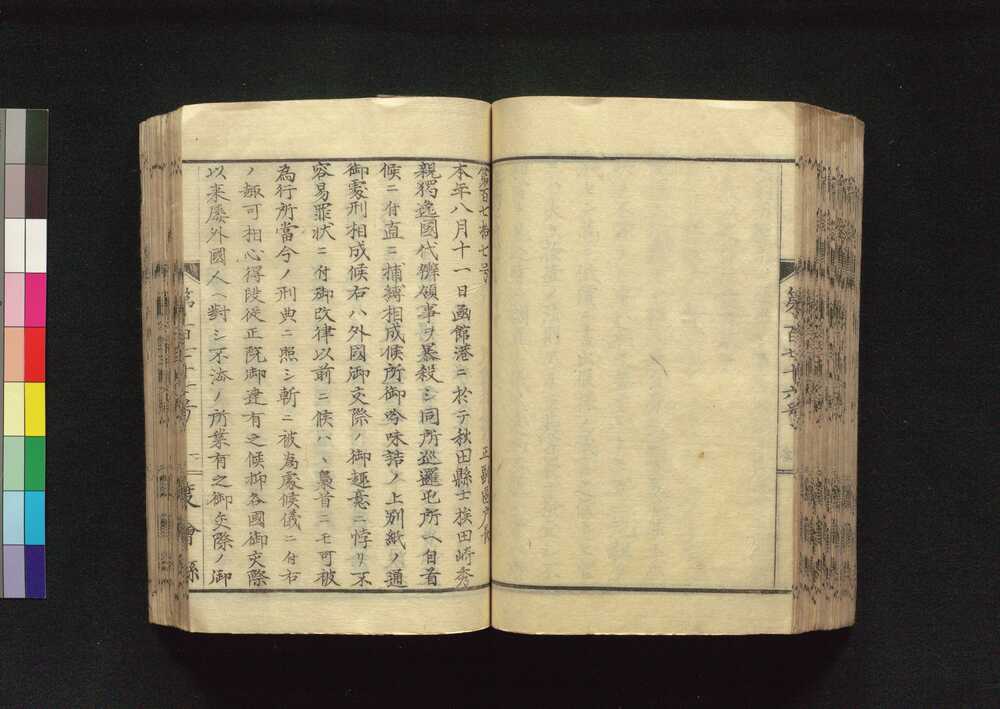 第百七十六号
第百七拾七号
正副區戸長
本年八月十一日函館港ニ於テ秋田縣士族田崎秀
親獨逸國代辨領事ヲ暴殺シ同所巡邏屯所ヘ自首
候ニ付直ニ捕縛相成候所御吟味詰ノ上別紙ノ通
御處刑相成候右ハ外國御交際ノ御趣意ニ悖リ不
容易罪状ニ付御改律以前ニ候ハヽ梟首ニモ可被
為行所當今ノ刑典ニ照シ斬ニ被為處候儀ニ付右
ノ趣可相心得段従正院御達有之候抑各國御交際
以来屡外國人ヘ對シ不法ノ所業有之御交際ノ御
第百七十七号
縣